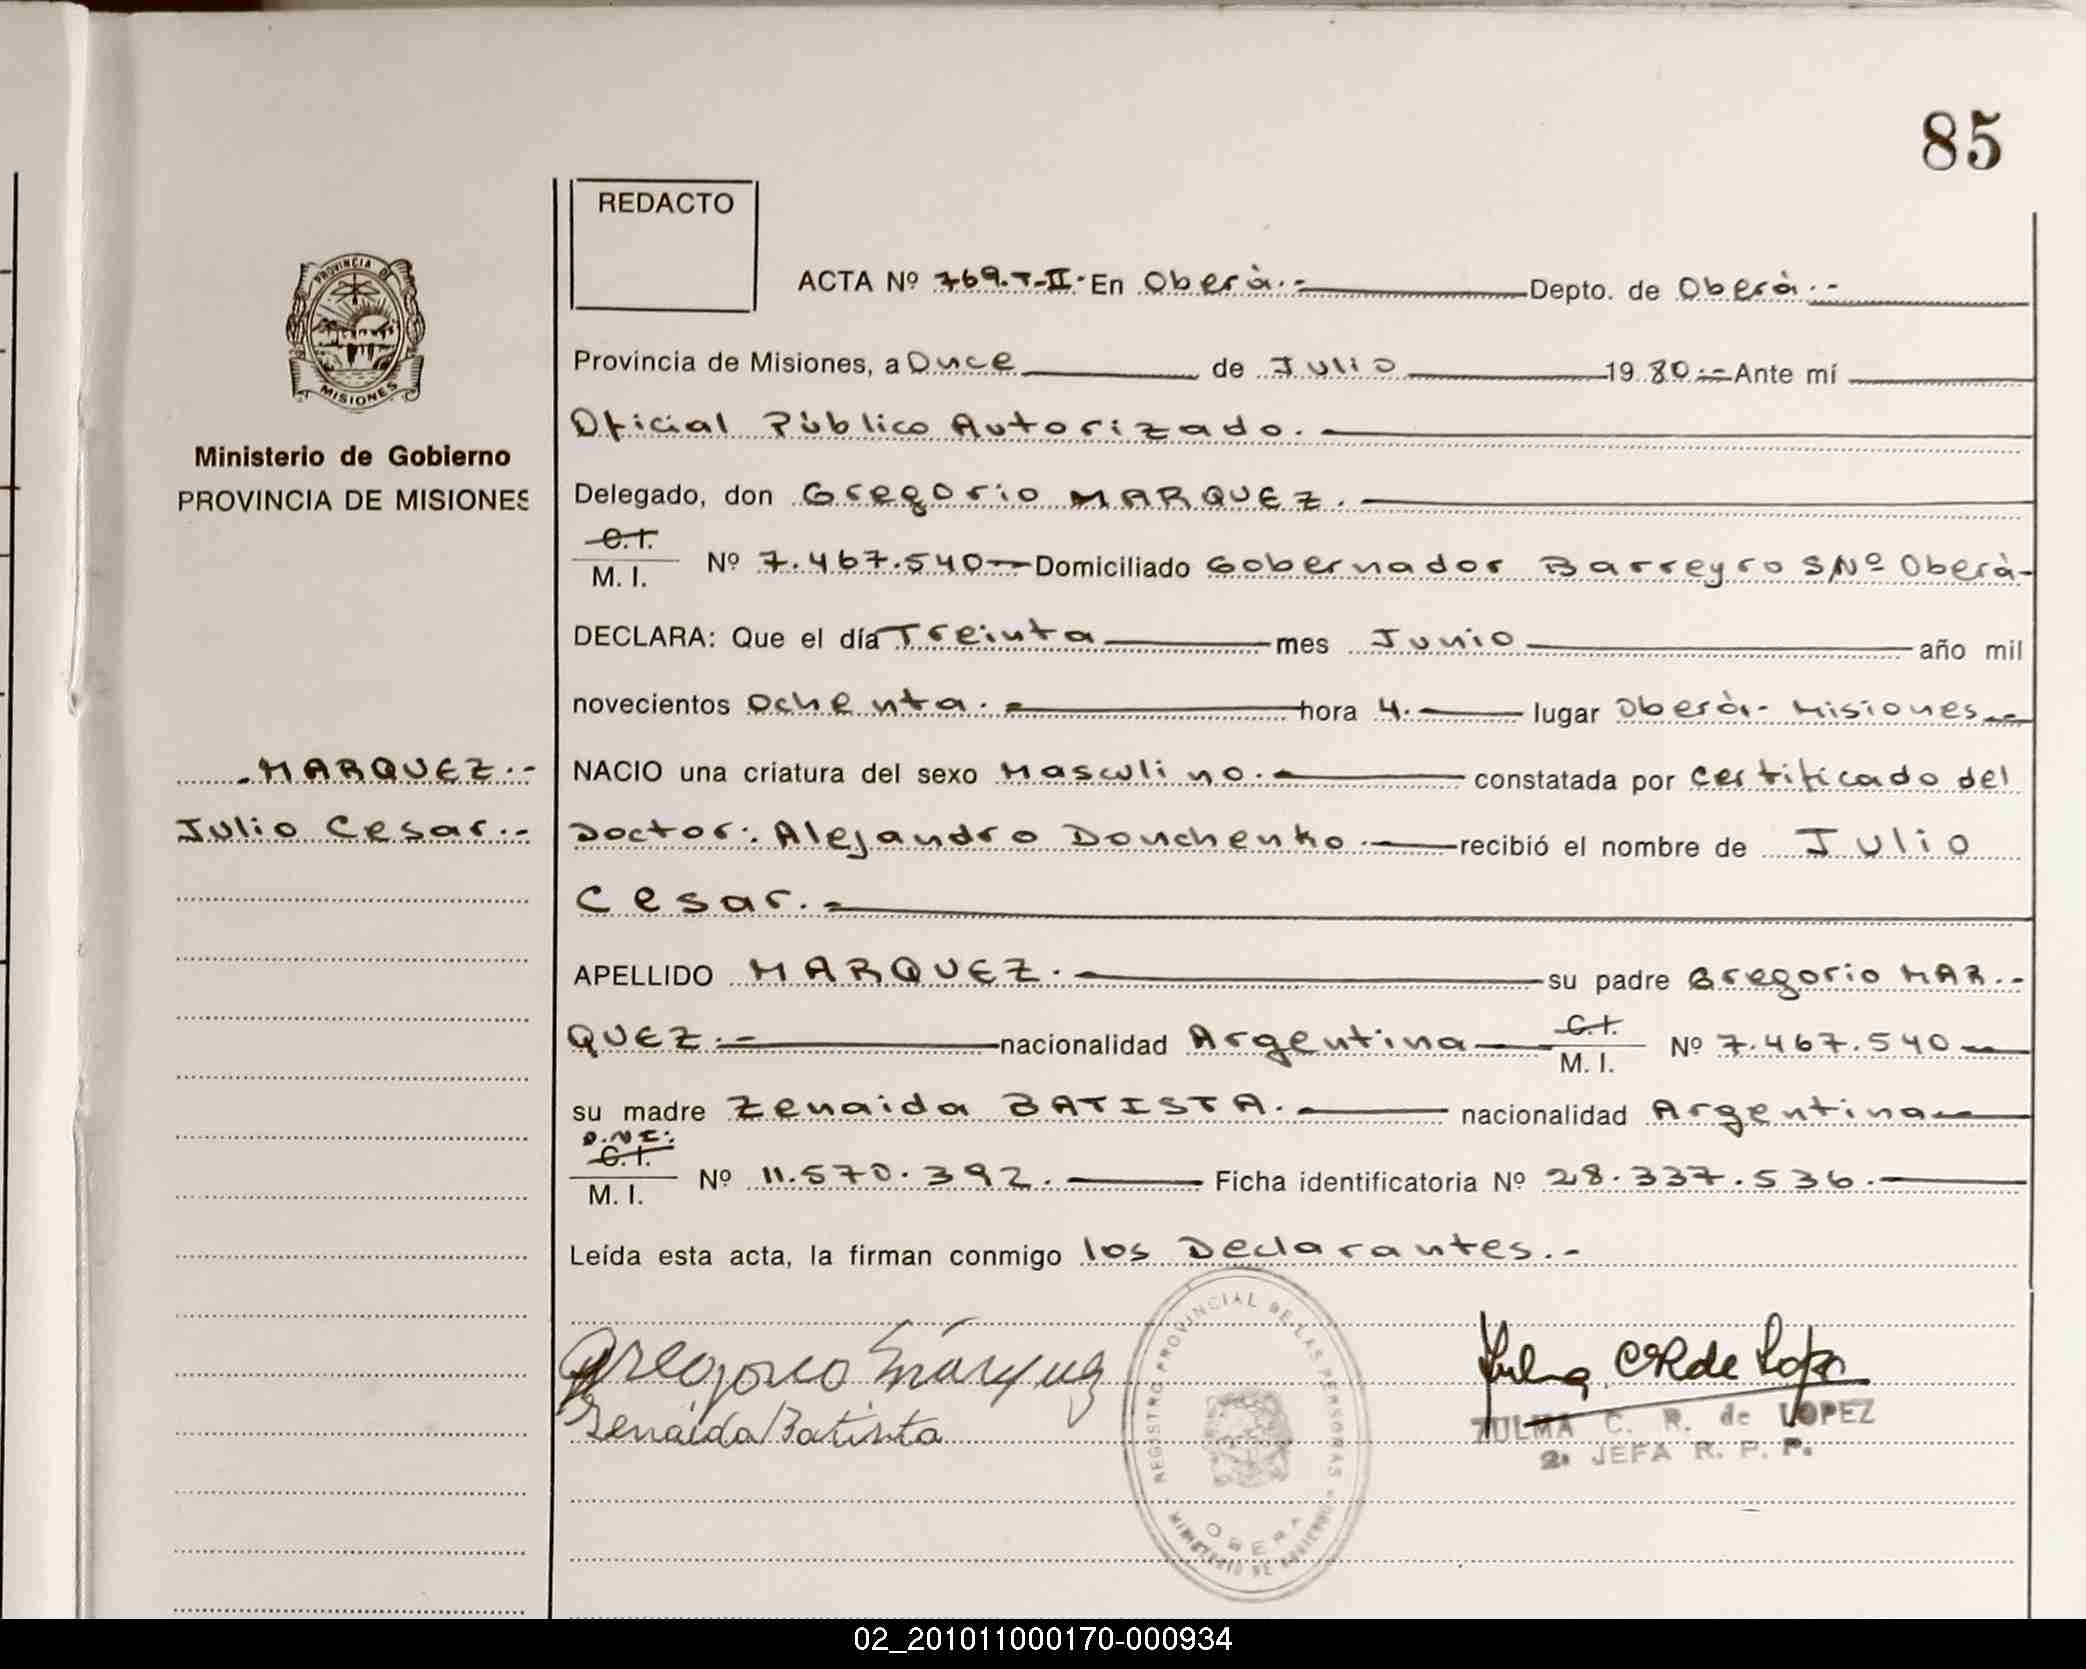 85
REDACTO
ACTA Nº 769.T-II. En Oberà.- Depto. de Oberà.-
Provincia de Misiones, a Once de Julio 19 80.- Ante mí
Oficial Pùblico Autorizado.
Delegado, don Gregorio MARQUEZ.
C.I.
M. I. Nº 7.467.540 Domiciliado Gobernador Barreyro S/Nº Oberà-
DECLARA: Que el día Treinta mes Junio año mil
novecientos Ochenta. hora 4. lugar Oberà.- Misiones.-
NACIO una criatura del sexo Masculino. constatada por Certificado del
Doctor: Alejandro Douchenko. recibió el nombre de Julio
Cesar.
APELLIDO MARQUEZ. su padre Gregorio MAR.-
QUEZ.- nacionalidad Argentina C.I.
M. I. Nº 7.467.540
su madre Zenaida BATISTA. nacionalidad Argentina
D.N.I.
C.I.
M. I. Nº 11.570.392. Ficha identificatoria Nº 28.337.536.
Leída esta acta, la firman conmigo los Declarantes.-
Gregorio Márquez
Zenáida Batista
ZULMA C. R. de LOPEZ
2ª JEFA R. P. P.
REGISTRO PROVINCIAL DE LAS PERSONAS
OBERA
MINISTERIO DE GOBIERNO
PROVINCIA D
MISIONES
Ministerio de Gobierno
PROVINCIA DE MISIONES
MARQUEZ.-
Julio Cesar.-
02_201011000170-000934